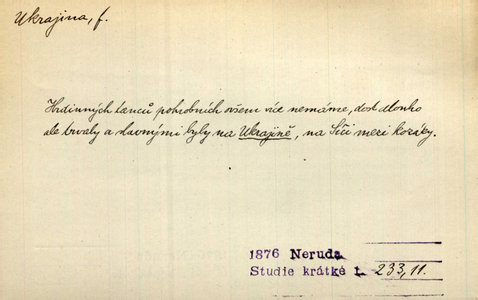 Ukrajina, f.
Hrdinných tanců pohrobních ovšem více nemáme, dost dlouho
ale trvaly a slavnými byly na Ukrajině, na Síči mezi kozáky.
1876 Neruda
Studie krátké 1. 233,11.